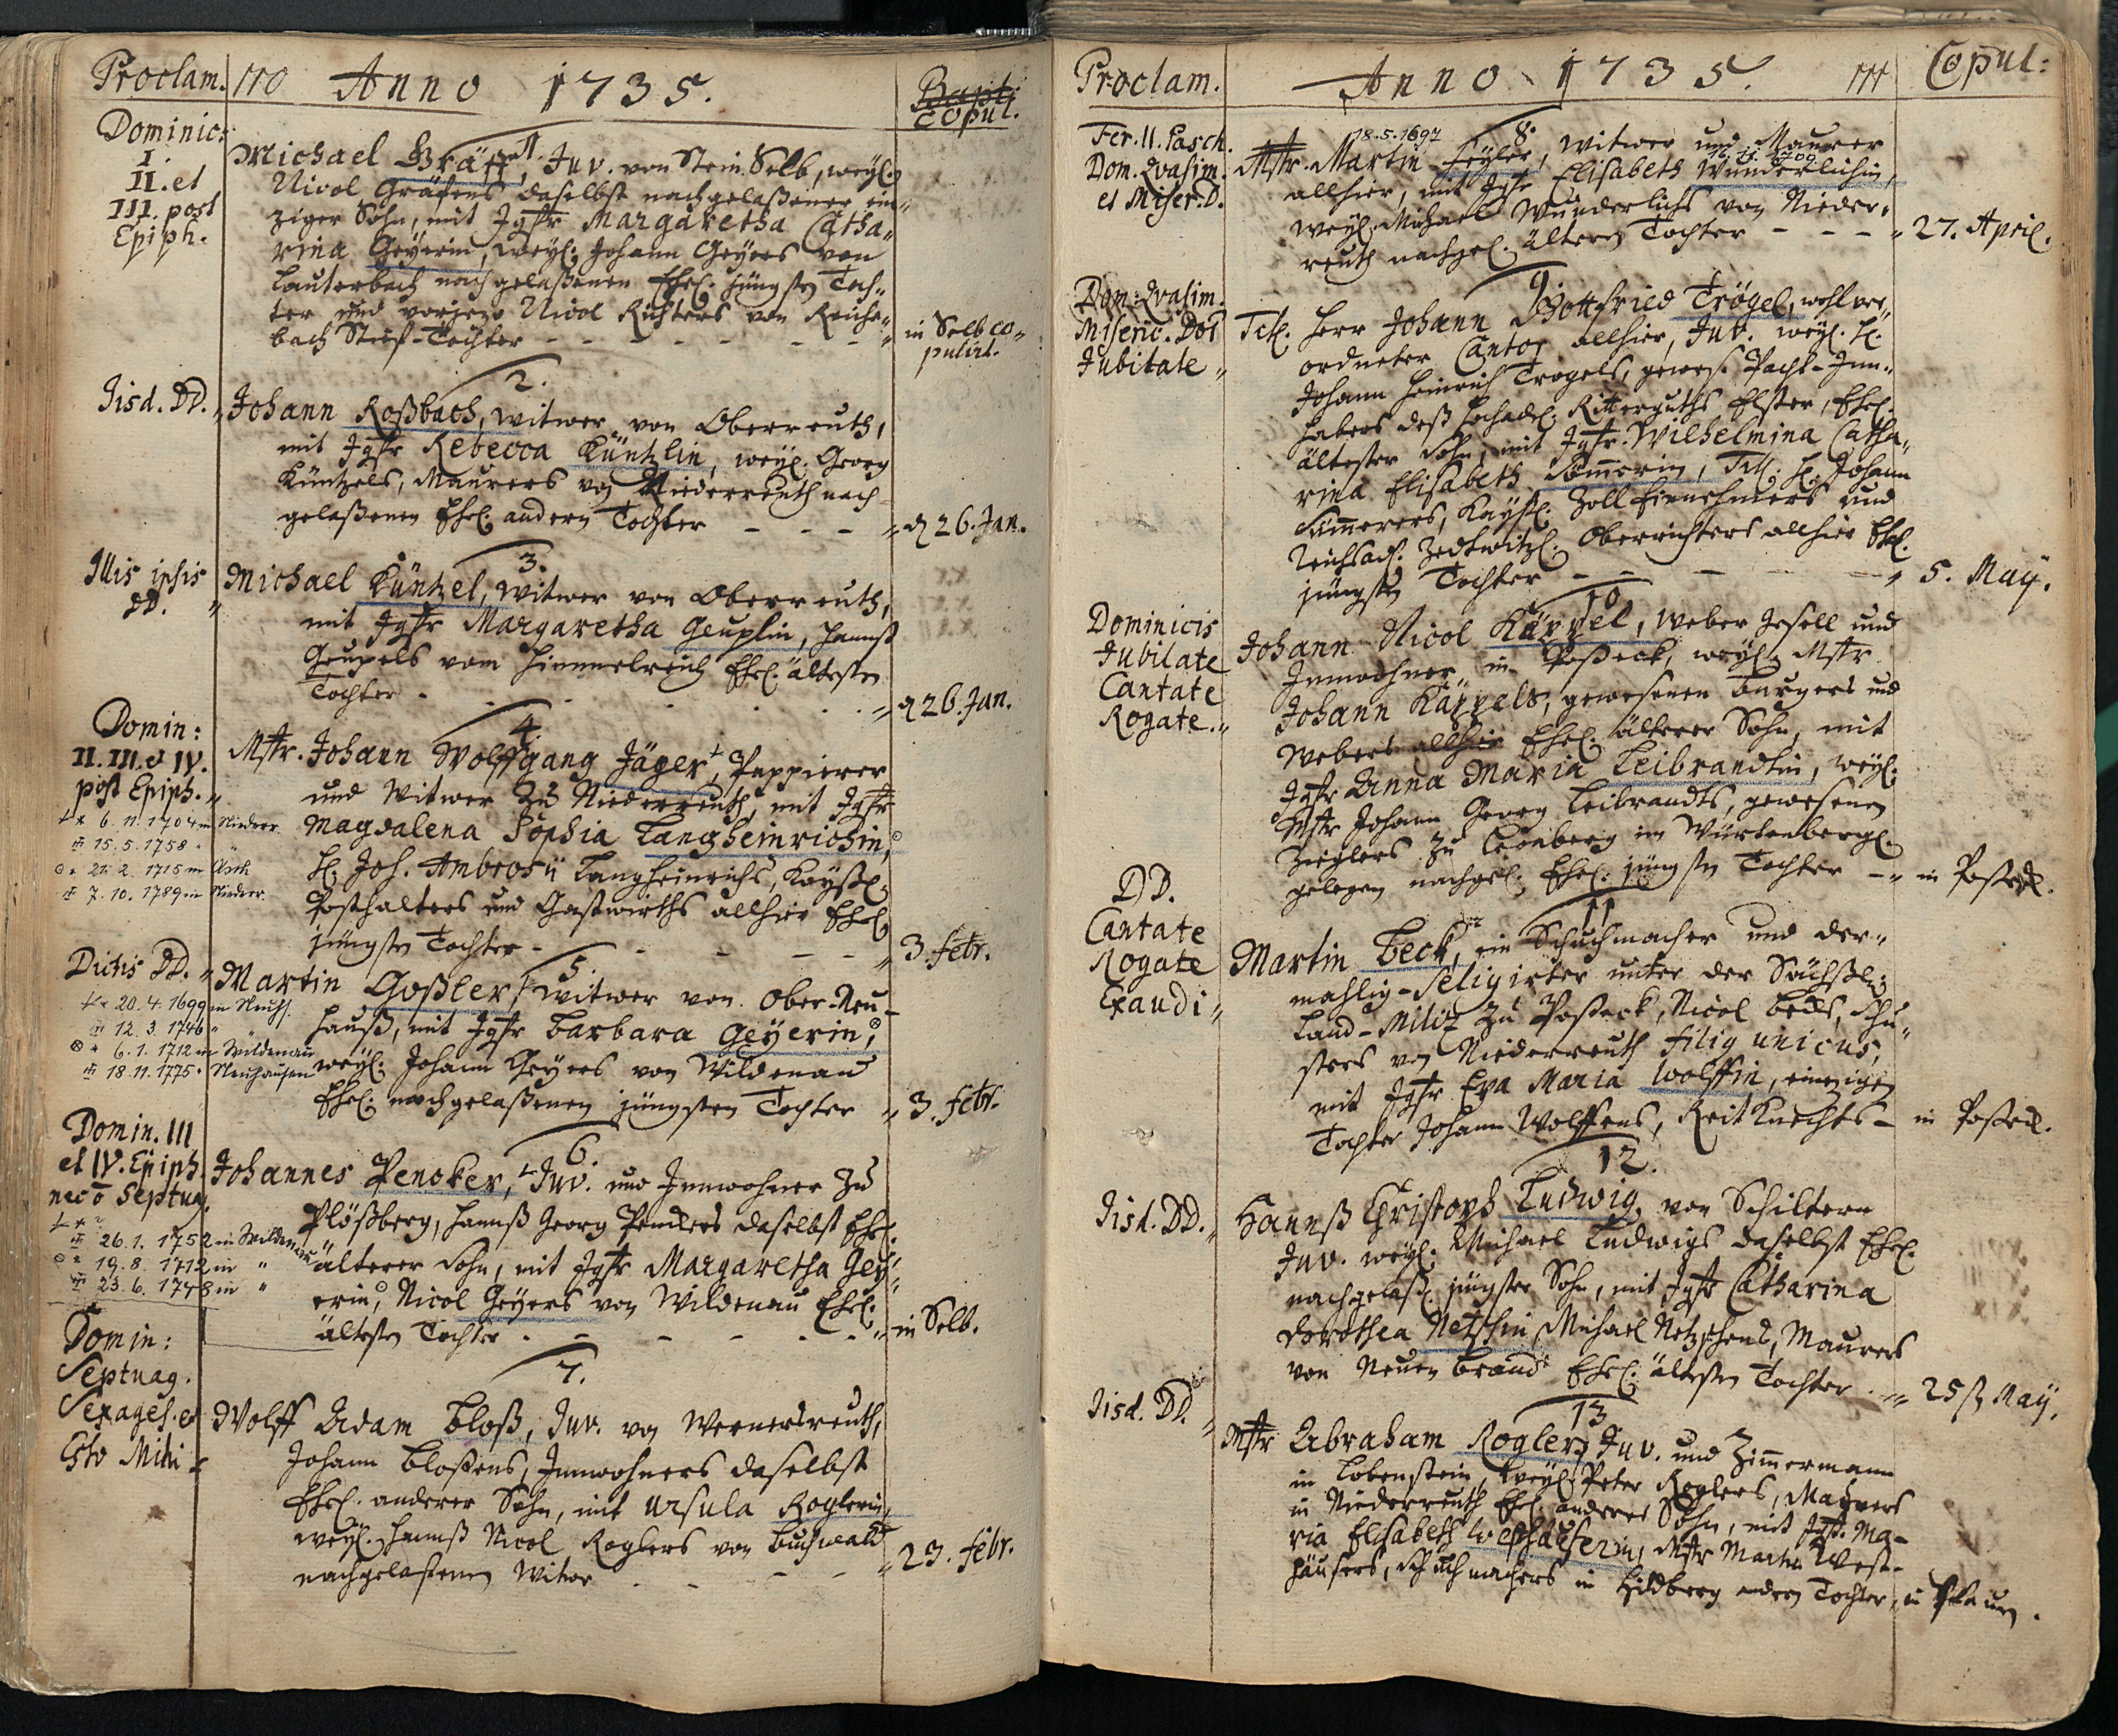 Proclam. 110 Anno 1735. Bapt: Copul.
Dominic: I. II. et III. post Epiph.
1.
Michael Gräff, Juv. von Stein Selb, weyl.
Nicol Gräfens daselbst nachgelaßener ein„
ziger Sohn, mit Jgfr Margaretha Catha„
rina Geyerin, weyl. Johann Geyers von
Lauterbach nachgelaßenen Ehel. jüngsten Toch„
ter und vorjezo Nicol Richters von
bach Stief-Tochter - - - - - -„ in Selb co„
pulirt.
2.
Iisd. DD.„ Johann Roßbach, Witwer von Oberreuth,
mit Jgfr Rebecca Küntzlin, weyl. Georg
Küntzels, Maurers von Niederreuth nach
gelaßenen Ehel. andern Tochter - - - -„ d 26. Jan.
3.
Illis ipsis DD. „ Michael Küntzel, Witwer von Oberreuth,
mit Jgfr Margaretha Geuplin, Hannß
Geupels vom Himmelreich Ehel. ältesten
Tochter - - - - -„ d 26. Jan.
4.
Domin: II. III. et IV. post Epiph.„
Mstr. Johann Wolffgang Jäger, Pappierer
und Witwer zu Niederreuth, mit Jgfr
Magdalena Sophia Langheinrichin,
H. Joh. Ambrosii Langheinrichs, Kayßl.
Posthalters und Gastwirths allhier Ehel
jüngsten Tochter - - - - -„ 3. Febr.
* 6. 11. 1704 in Niederr.
15. 5. 1758 " "
* 21. 2. 1715 in Asch
7. 10. 1789 in Niederr.
5.
Dictis DD.„ Martin Goßler, Witwer von Ober-Neu-
hauß, mit Jgfr Barbara Geyerin,
weyl. Johann Geyers von Wildenau
Ehel. nachgelaßenen jüngsten Tochter „ 3. Febr.
* 20. 4. 1699 in Neuhs.
12. 3. 1746 " "
* 6. 1. 1712 in Wildenau
18. 11. 1775 " Neuhausen
6.
Domin. III et IV. Epiph. nec õ Septuag.
Johannes Pencker, Juv. und Innwohner zu
Plößberg, Hannß Georg Penckers daselbst Ehel.
älterer Sohn, mit Jgfr Margaretha Gey„
erin, Nicol Geyers von Wildenau Ehel.
ältesten Tochter - - - - -„ in Selb.
* ?
26. 1. 1752 in Wildenau
* 19. 8. 1712 in "
23. 6. 1748 in "
7.
Domin: Septuag. Sexages. et Esto Mihi
Wolff Adam Bloß, Juv. von Wernersreuth,
Johann Bloßens, Innwohners daselbst
Ehel. anderer Sohn, mit Ursula Roglerin,
weyl. Hannß Nicol Roglers von Buchwald
nachgelaßenen Witwe - - - -„ 23. Febr.
Proclam. Anno 1735. 111 Copul:
8.
18. 5. 1697
Fer. II. Pasch. Dom. Qvasim. et Miser. D.
Mstr. Martin Feyler, Witwer und Maurer
allhier, mit Jgfr Elisabeth Wunderlichin,
weyl. Michael Wunderlichs von Nieder„
reuth nachgel. ältern Tochter - - -„ 27. April.
9.
Dom. Qvasim. Miseric. Doi Jubilate„
Titl. Herr Johann Gottfried Trögel, wohlver„
ordneter Cantor allhier, Juv. weyl. H.
Johann Heinrich Trögels, gewes. Pacht-Inn„
habers deß Hochadel. Ritterguths Elster, Ehel.
ältester Sohn, mit Jgfr. Wilhelmina Catha„
rina Elisabeth Sömmerin, Titl. H. Johann
Sömmerers, Kayßl. Zoll Einnehmers und
Zedtwitzl. Oberrichters allhier Ehel.
jüngsten Tochter - - - -„ 5. May.
10
Dominicis Jubilate Cantate Rogate.„
Johann Nicol Käppel, Weber Gesell und
Innwohner in Poßeck, weyl. Mstr
Johann Käppels, gewesenen Burgers und
Webers allhier Ehel. älterer Sohn, mit
Jgfr Anna Maria Leibrandtin, weyl.
Mstr Johann Georg Leibrandts, gewesenen
Zieglers zu Leonberg im Würtenbergl.
gelegen nachgel. Ehel. jüngsten Tochter -„ in Poßeck.
11
DD. Cantate Rogate Exaudi„
Martin Beck, ein Schuchmacher und der„
mahlig-Seligirter unter der Sächßl.
Land-Miliz zu Poßeck, Nicol Becks, Schu„
sters von Niederreuth filig unicus,
mit Jgfr Eva Maria Wolffin, einzigen
Tochter Johann Wolffens, Reit Knechts - in Poßeck.
12.
Iisd. DD.„ Hannß Christoph Ludwig, von Schiltern
Juv. weyl. Michael Ludwigs daselbst Ehel.
nachgelaß. jüngster Sohn, mit Jgfr Catharina
Dorothea Netschin, Michael Netzschens, Maurers
von Neuen Brand Ehel. ältesten Tochter -„ 25ß May.
13
Iisd. DD. „ Mstr Abraham Rogler, Juv. und Zimmermann
in Lobenstein, weyl. Peter Roglers, Maurers
in Niederreuth Ehel. anderer Sohn, mit Jgfr. Ma-
ria Elisabeth Westhäuserin, Mstr Martin West-
häusers, Schuchmachers in Hildberg andern Tochter, in Plauen.